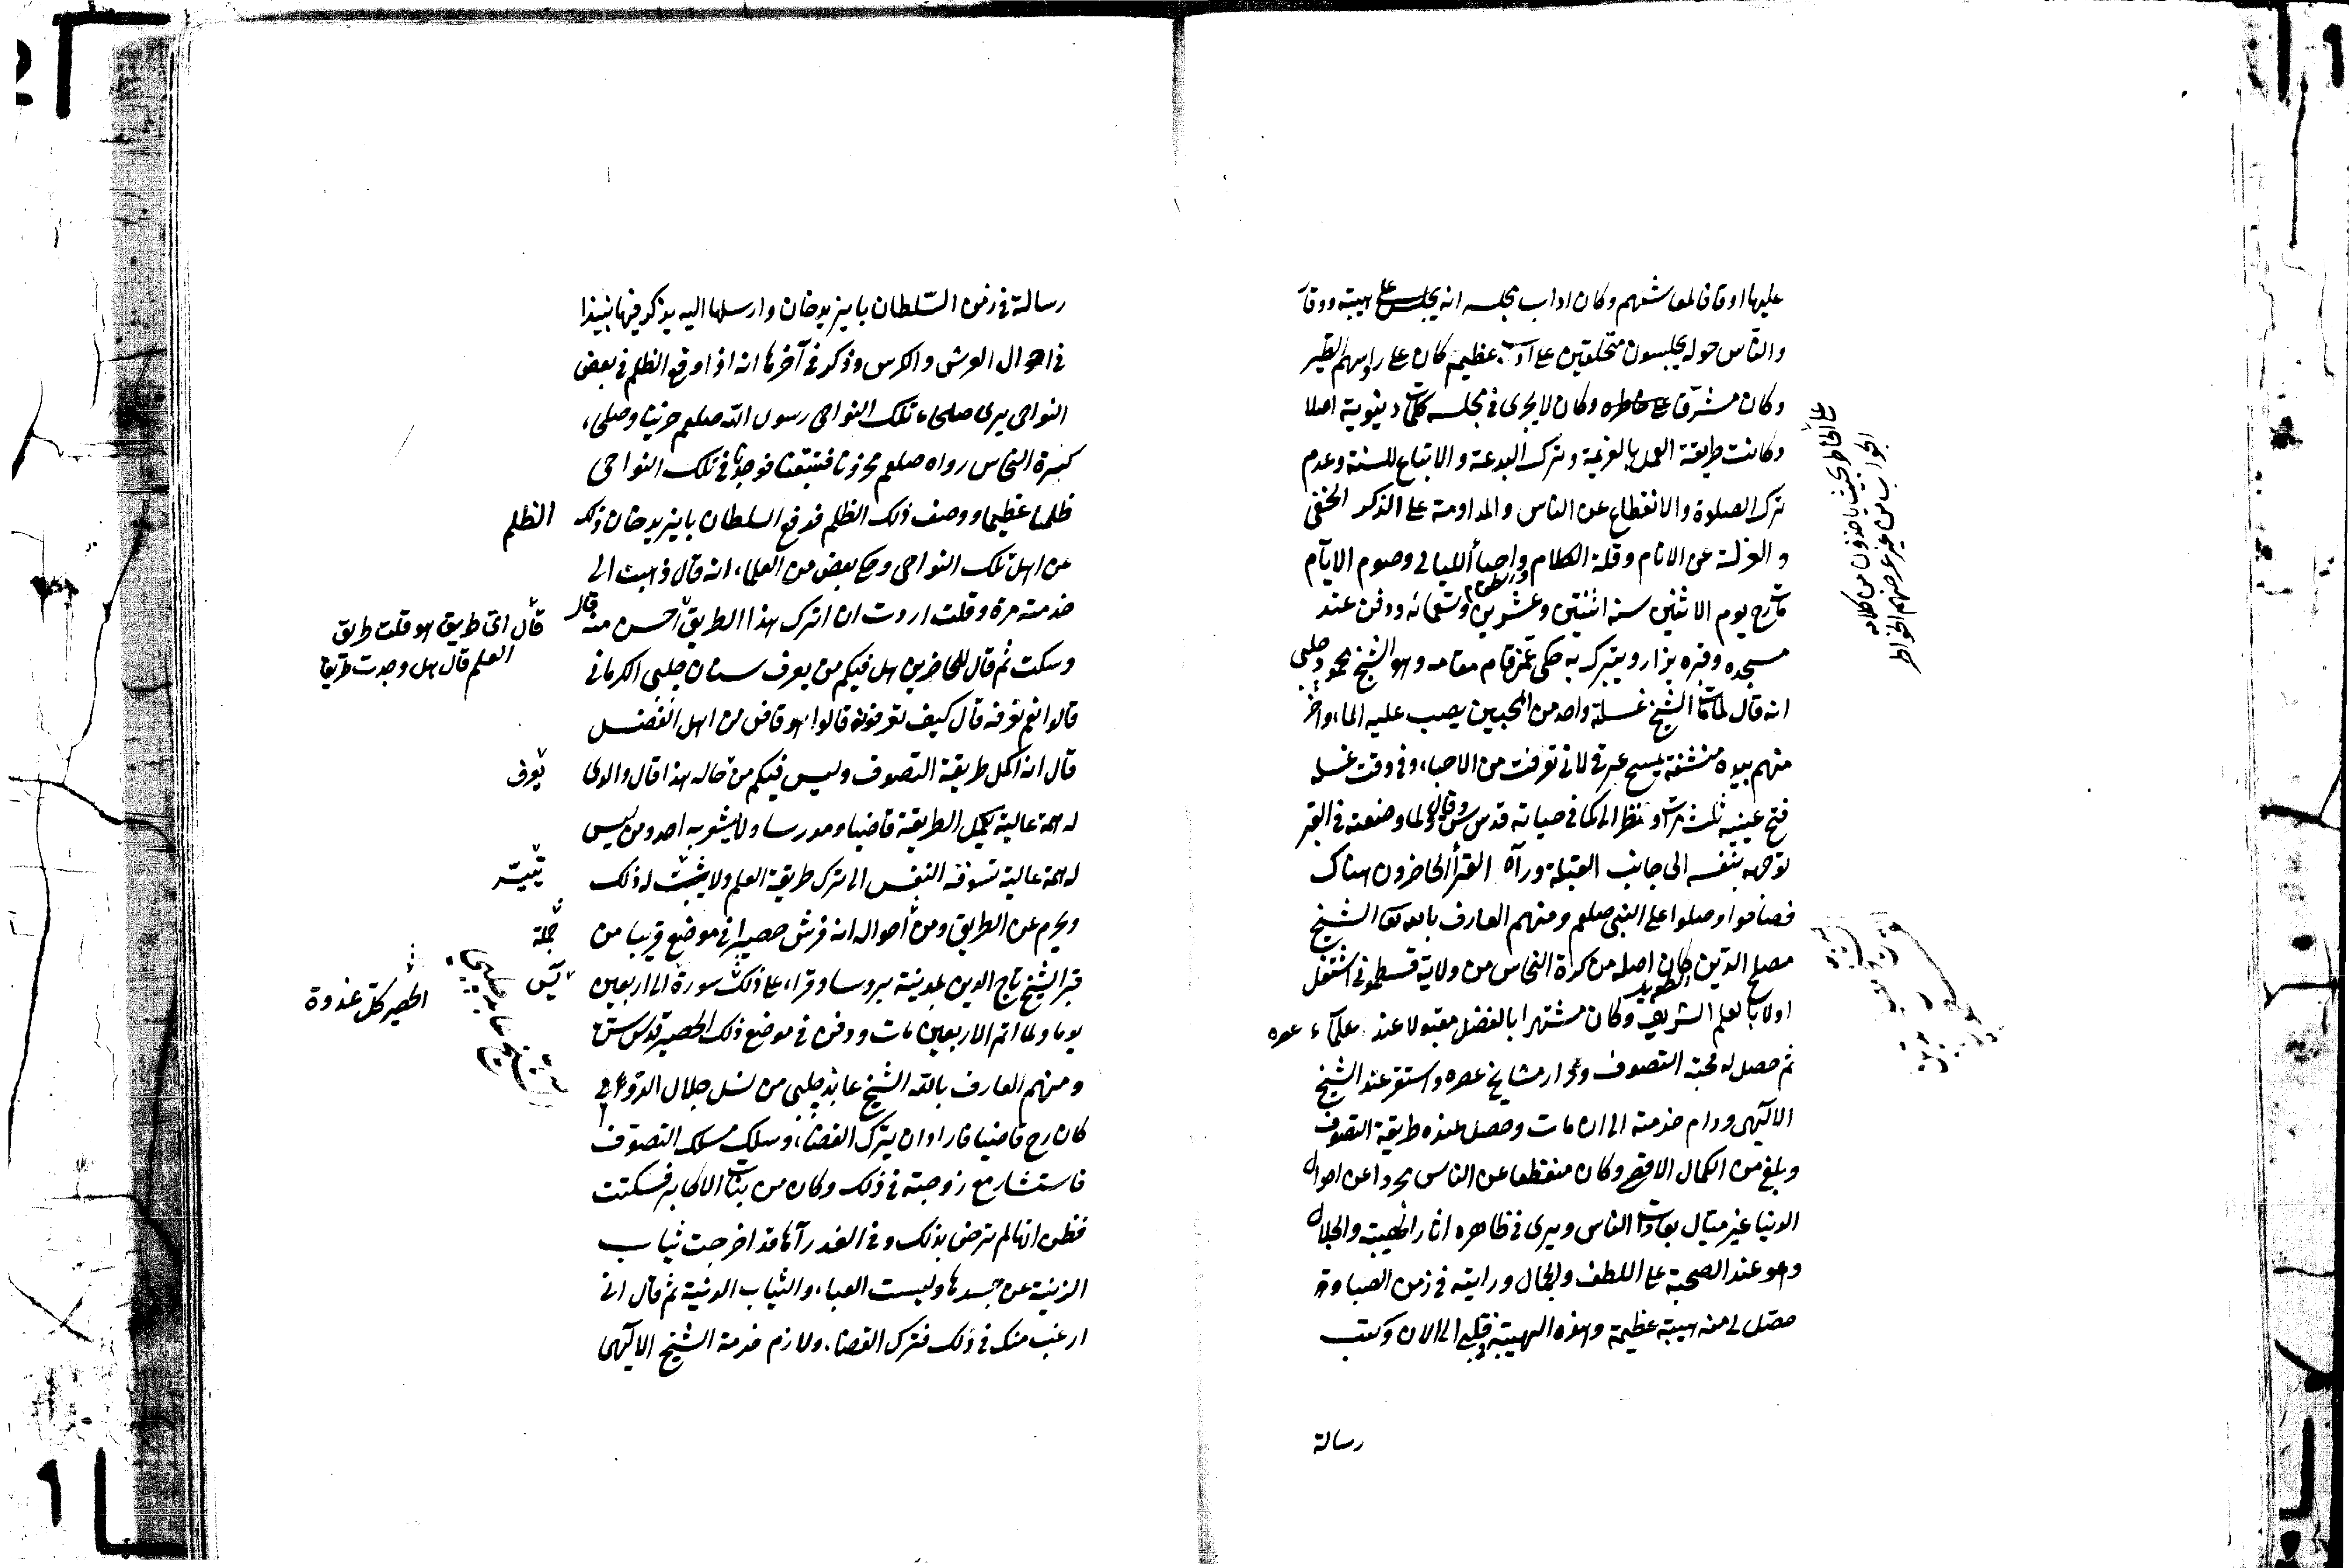 عليها اوقافا لمعاشهم وكان اداب مجلسه انه يجلس على هيبة ووقار
والناس حوله يجلسون متحلقين على آداب عظيمة كان على رؤسهم الطير
وكان مشرفا على خاطره وكان لا يجرى فى مجلسه كلمات دنيوية اصلا
وكانت طريقة العمل بالعزيمة وترك البدعة والاتباع للسنة وعدم
ترك الصلوة والانقطاع عن الناس والمداومة على الذكر الخفى
و العزلة عن الانام وقلة الكلام والطعام واحياء الليالى وصوم الايام
مات رح يوم الاثنين سنه اثنتين وعشرين وتسعمائه ودفن عند
مسجده وقبره يزار ويتبرك به حكى عمن قام مقامه وهو الشيخ محمود چلبى
انه قال لما مات الشيخ غسلته واحد من المحبين يصب عليه الماء وآخر
منهم بيده منشفة يمسح عرقى لانى تعرقت من الاحياء وفى وقت غسله
فتح عينيه ثلث مرات ونظر الى كما فى حياته قدس سره وقال ولما وضعته فى القبر
توجه بنفسه الى جانب القبلة ورآه القراء الحاضرون هناك
فصاحوا وصلوا على النبى صلعم ومنهم العارف بالله تعالى الشيخ
مصلح الدين الطويل كان اصله من كرة النحاس من ولاية قسطمونى اشتغل
اولا بالعلم الشريف وكان مشتهرا بالفضل مقبولا عند علماء عصره
ثم حصل له محبة التصوف وزار مشايخ عصره واستقر عند الشيخ
الالهى ودام خدمته الى ان مات وحصل عنده طريقة التصوف
وبلغ من الكمال الاقصى وكان منقطعا عن الناس مجردا عن احوال
الدنيا غير مبال بعادات الناس ويرى فى ظاهره اثار الهيبة والجلال
وهو عند الصحبة على اللطف والجمال ورايته فى زمن الصبا وقد
حصل لى منه هيبة عظيمة وهذه الهيبة فى قلبى الى الان وكتب
رسالة
على الخاطر بحيث ياخذون من كلامه
الجواب من غير عرضهم الخواطر
رسالة فى زمن السلطان بايزيد خان وارسلها اليه يذكر فيها نبذا
فى احوال العرش والكرسى وذكر فى آخرها انه اذا وقع الظلم فى بعض
النواحى يرى صلحاء تلك النواحى رسول الله صلعم حزينا وصلحاء
كرة النحاس رواه صلعم محزونا فتتبعنا فوجدنا فى تلك النواحى
ظلما عظيما ووصف ذلك الظلم فدفع السلطان بايزيد خان ذلك
الظلم
عن اهل تلك النواحى وحكى بعض من العلماء انه قال ذهبت الى
خدمته مرة وقلت اردت ان اترك هذا الطريق احسن منه قال
قال اى طريق هو قلت طريق
العلم قال هل وجدت طريقا
وسكت ثم قال للحاضرين هل فيكم من يعرف سنان چلبى الكرمانى
قالوا نعم نعرفه قال كيف تعرفونه قالوا هو قاض من اهل الفضل
قال انه اكمل طريقة التصوف وليس فيكم من حاله هذا قال والولى
يعرف
له همة عالية يكمل الطريقة قاضيا ومدرسا ولا يشعر به احد ومن ليس
له همة عالية تسوقه النفس الى ترك طريقة العلم ولا يثبت له ذلك
يتيسر
ويحرم عن الطريق ومن احواله انه فرش حصيرا فى موضع قريب من
جملة
قبر الشيخ تاج الدين بمدينة بروسا وقراء على ذلك سورة الى اربعين
يس
الحصير كل غدوة
يوما ولما اتم الاربعين مات ودفن فى موضع ذلك الحصير قدس سره
ومنهم العارف بالله الشيخ عابد چلبى من نسل جلال الدين الرومى
الشيخ عابد چلبى
كان رح قاضيا فاراد ان يترك القضاء وسلك مسلك التصوف
فاستشار مع زوجته فى ذلك وكان من بنات الاكابر فسكتت
فظن انها لم ترض بذلك وفى الغد رآها قد اخرجت ثياب
الزينة عن جسدها ولبست العباء والثياب الدنية ثم قال انى
ارغب منك فى ذلك فترك القضاء ولازم خدمة الشيخ الالهى